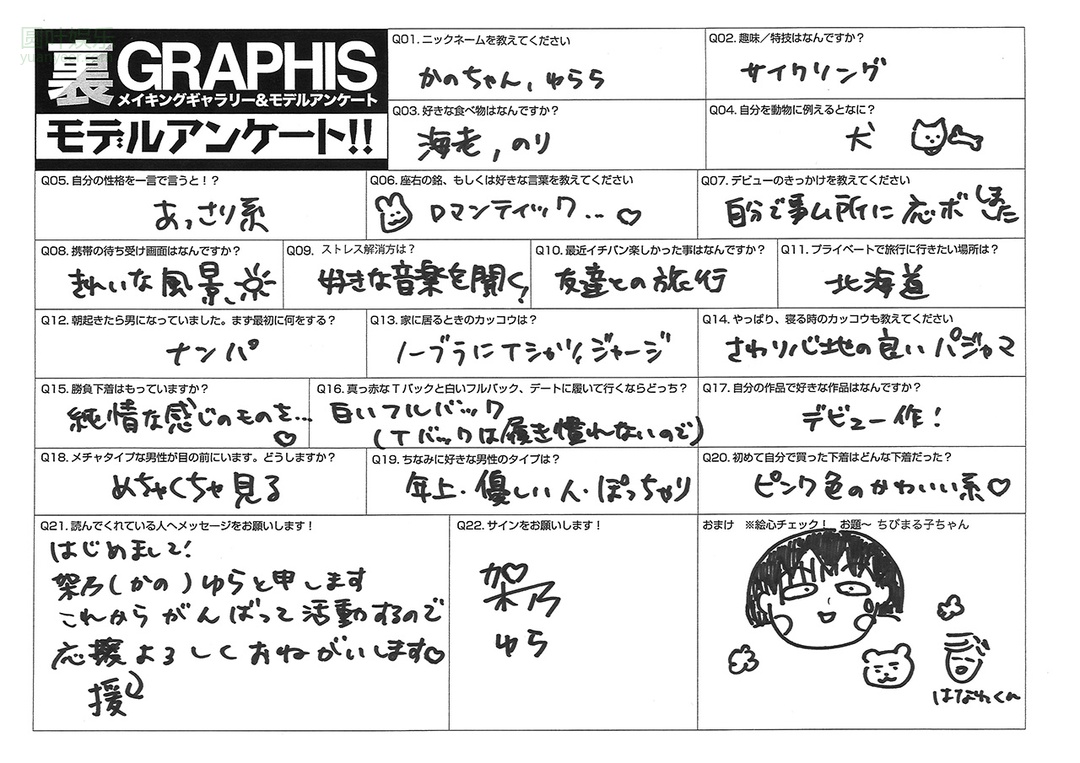 圆味娱乐
裏GRAPHIS
メイキングギャラリー&モデルアンケート
モデルアンケート!!
Q01. ニックネームを教えてください
かのちゃん、ゆらら
Q02. 趣味／特技はなんですか？
サイクリング
Q03. 好きな食べ物はなんですか？
海老,のり
Q04. 自分を動物に例えるとなに？
犬
Q05. 自分の性格を一言で言うと！？
あっさり系
Q06. 座右の銘、もしくは好きな言葉を教えてください
ロマンティック…♡
Q07. デビューのきっかけを教えてください
自分で事ム所に応ボしました
Q08. 携帯の待ち受け画面はなんですか？
きれいな風景、
Q09. ストレス解消方は？
好きな音楽を聞く！
Q10. 最近イチバン楽しかった事はなんですか？
友達との旅行
Q11. プライベートで旅行に行きたい場所は？
北海道
Q12. 朝起きたら男になっていました。まず最初に何をする？
ナンパ
Q13. 家に居るときのカッコウは？
ノーブラにTシャツ、ジャージ
Q14. やっぱり、寝る時のカッコウも教えてください
さわり心地の良いパジャマ
Q15. 勝負下着はもっていますか？
純情な感じのものを…♡
Q16. 真っ赤なTバックと白いフルバック、デートに履いて行くならどっち？
白いフルバック
(Tバックは履き慣れないので)
Q17. 自分の作品で好きな作品はなんですか？
デビュー作！
Q18. メチャタイプな男性が目の前にいます。どうしますか？
めちゃくちゃ見る
Q19. ちなみに好きな男性のタイプは？
年上・優しい人・ぽっちゃり
Q20. 初めて自分で買った下着はどんな下着だった？
ピンク色のかわいい系♡
Q21. 読んでくれている人へメッセージをお願いします！
はじめまして！
架乃(かの)ゆらと申します
これからがんばって活動するので
応援よろしくおねがいします♡
援
Q22. サインをお願いします！
架乃
ゆら
おまけ ※絵心チェック！ お題〜 ちびまる子ちゃん
はなわくん